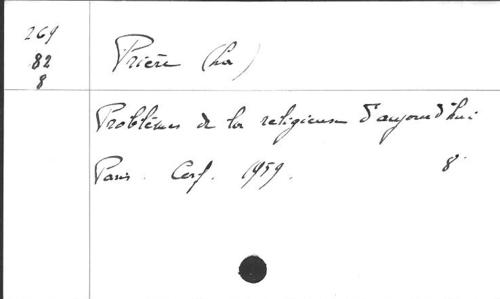 269
82
8
Prière (La)
Problèmes de la religieuse d'aujourd'hui
Paris. Cerf. 1959. 8°